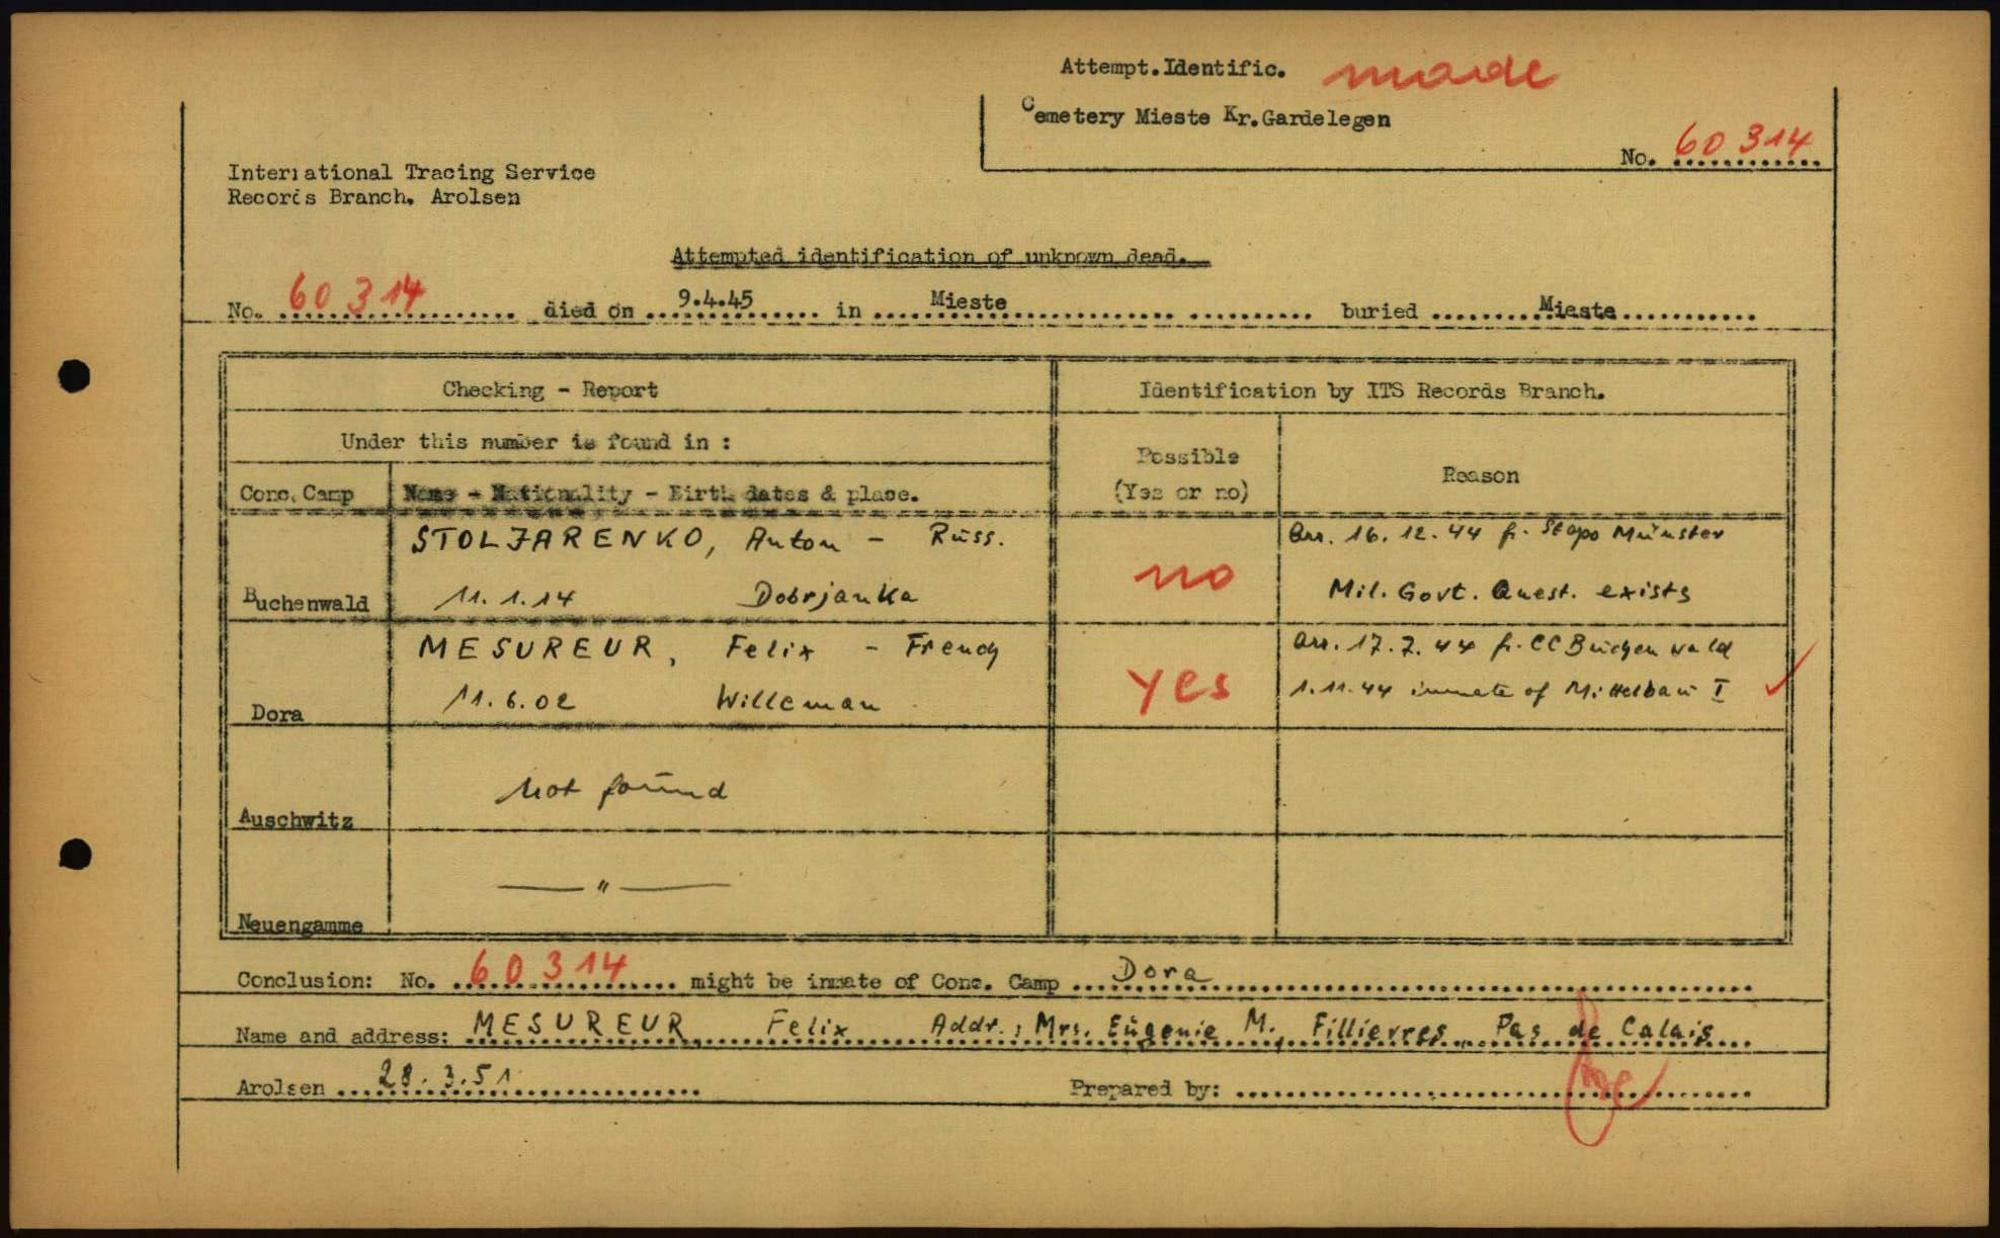 Attempt.Identific. made
Cemetery Mieste Kr.Gardelegen
No. 60 314
International Tracing Service
Records Branch, Arolsen
Attempted identification of unknown dead.
No. 60 314 died on 9.4.45 in Mieste buried Mieste
Checking - Report
Identification by ITS Records Branch.
Under this number is found in :
Possible
(Yes or no)
Reason
Conc. Camp
Name - Nationality - Birth dates & place.
Buchenwald
STOLJARENKO, Anton - Russ.
11.1.14 Dobrjanka
no
Arr. 16.12.44 fr. Stapo Münster
Mil. Govt. Quest. exists
Dora
MESUREUR, Felix - French
11.6.02 Willeman
yes
Arr. 17.7.44 fr. CC Buchenwald
1.11.44 inmate of Mittelbau I
Auschwitz
not found
Neuengamme
— " —
Conclusion: No. 60 314 might be inmate of Conc. Camp Dora
Name and address: MESUREUR, Felix Addr.: Mrs. Eugenie M., Fillievres, Pas de Calais
Arolsen 28.3.51
Prepared by: